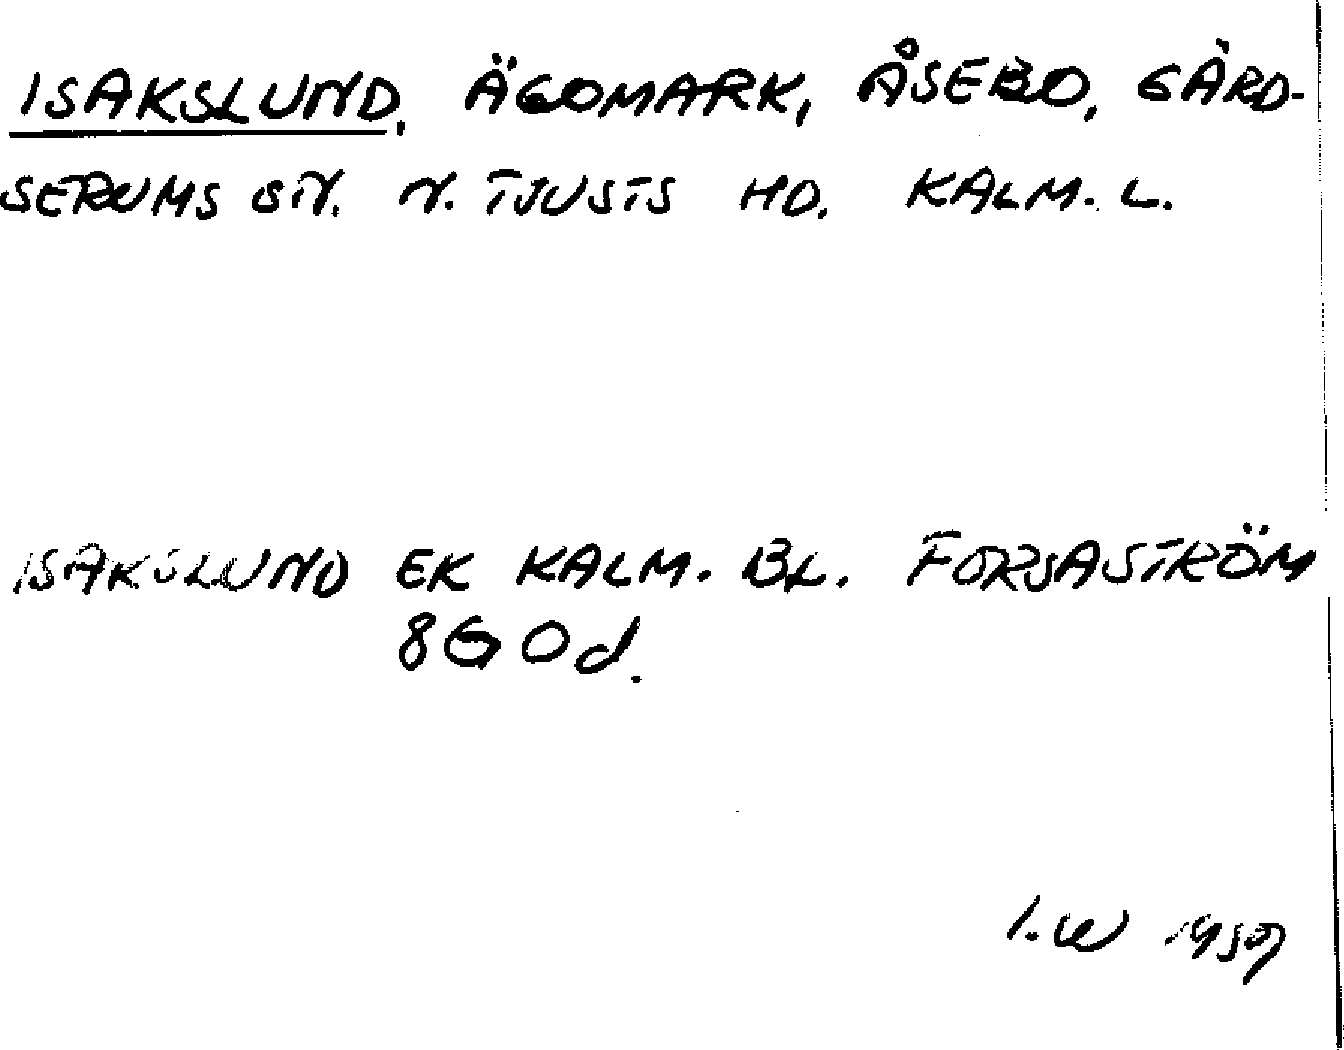 ISAKSLUND, ÄGOMARK, ÅSEBO, GÄRD-
SERUMS SN. N. TJUSTS HD. KALM. L.
ISAKSLUND EK KALM. BL. FORSASTRÖM
8G0d.
I.W 1959